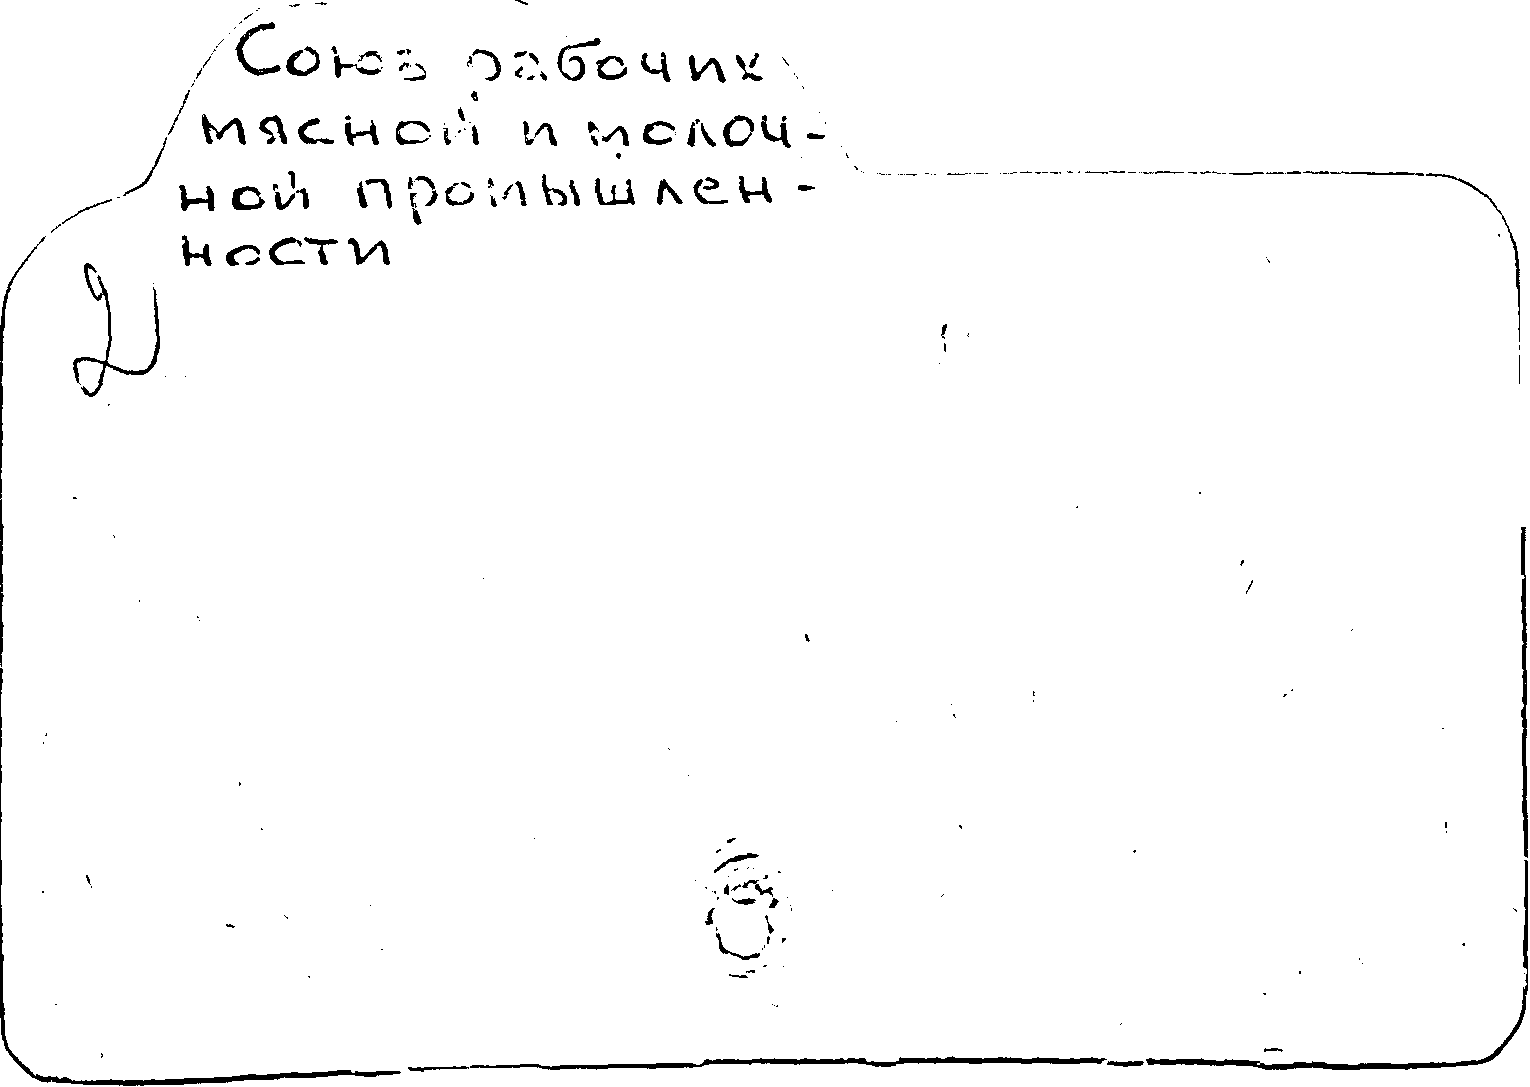 Союз рабочих
мясной и молоч-
ной промышлен-
ности
2